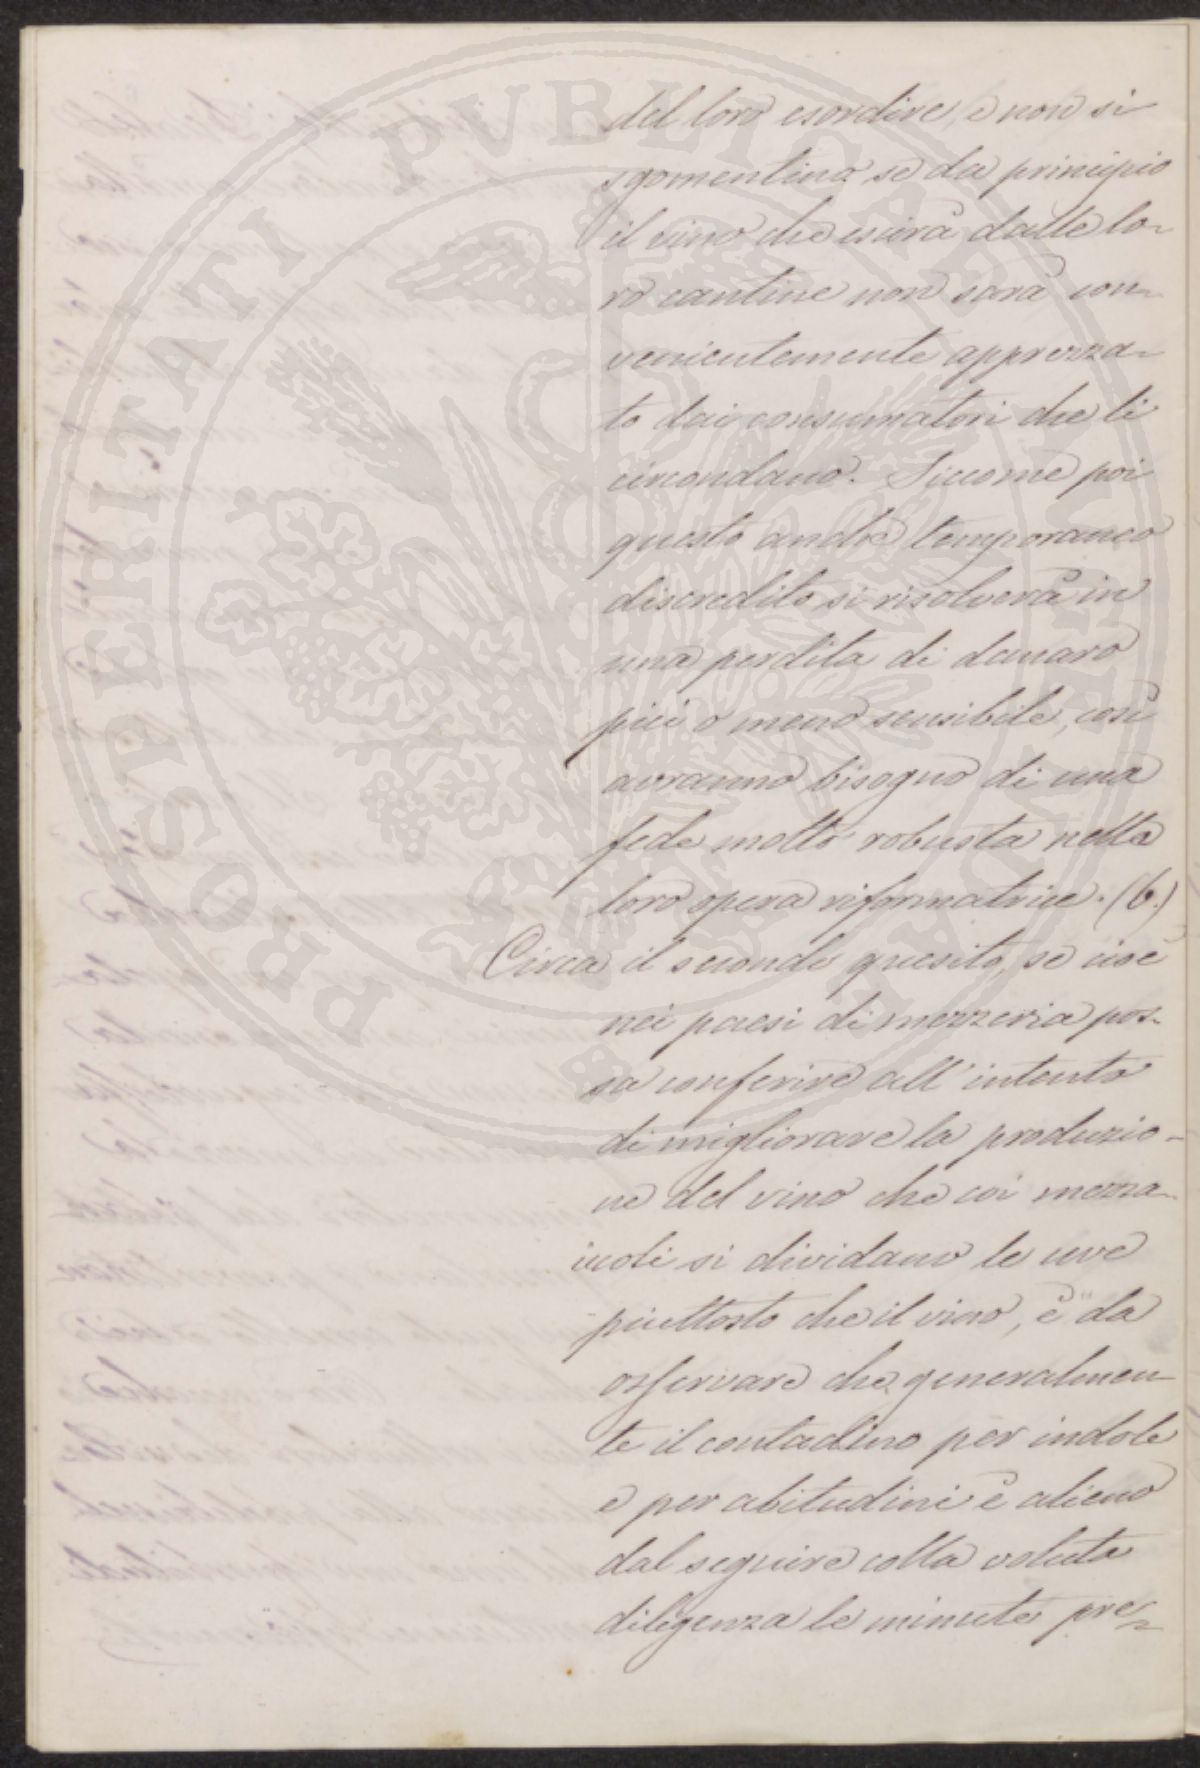 del loro esordire, e non si
sgomentino se da principio
il vino che escirà dalle lo-
ro cantine non sarà con-
venientemente apprezza-
to dai consumatori che li
circondano. Siccome poi
questo anche temporaneo
discredito si risolverà in
una perdita di danaro
più o meno sensibile, così
avranno bisogno di una
fede molto robusta nella
loro opera riformatrice. (6.)
Circa il secondo quesito, se cioè
nei paesi di mezzeria pos-
sa conferire all'intento
di migliorare la produzio-
ne del vino che coi mezza-
iuoli si dividano le uve
piuttosto che il vino, è da
osservare che generalmen-
te il contadino per indole
e per abitudini è alieno
dal seguire colla voluta
diligenza le minute pre-
PROSPERITATI PUBLICAE AUGENDAE